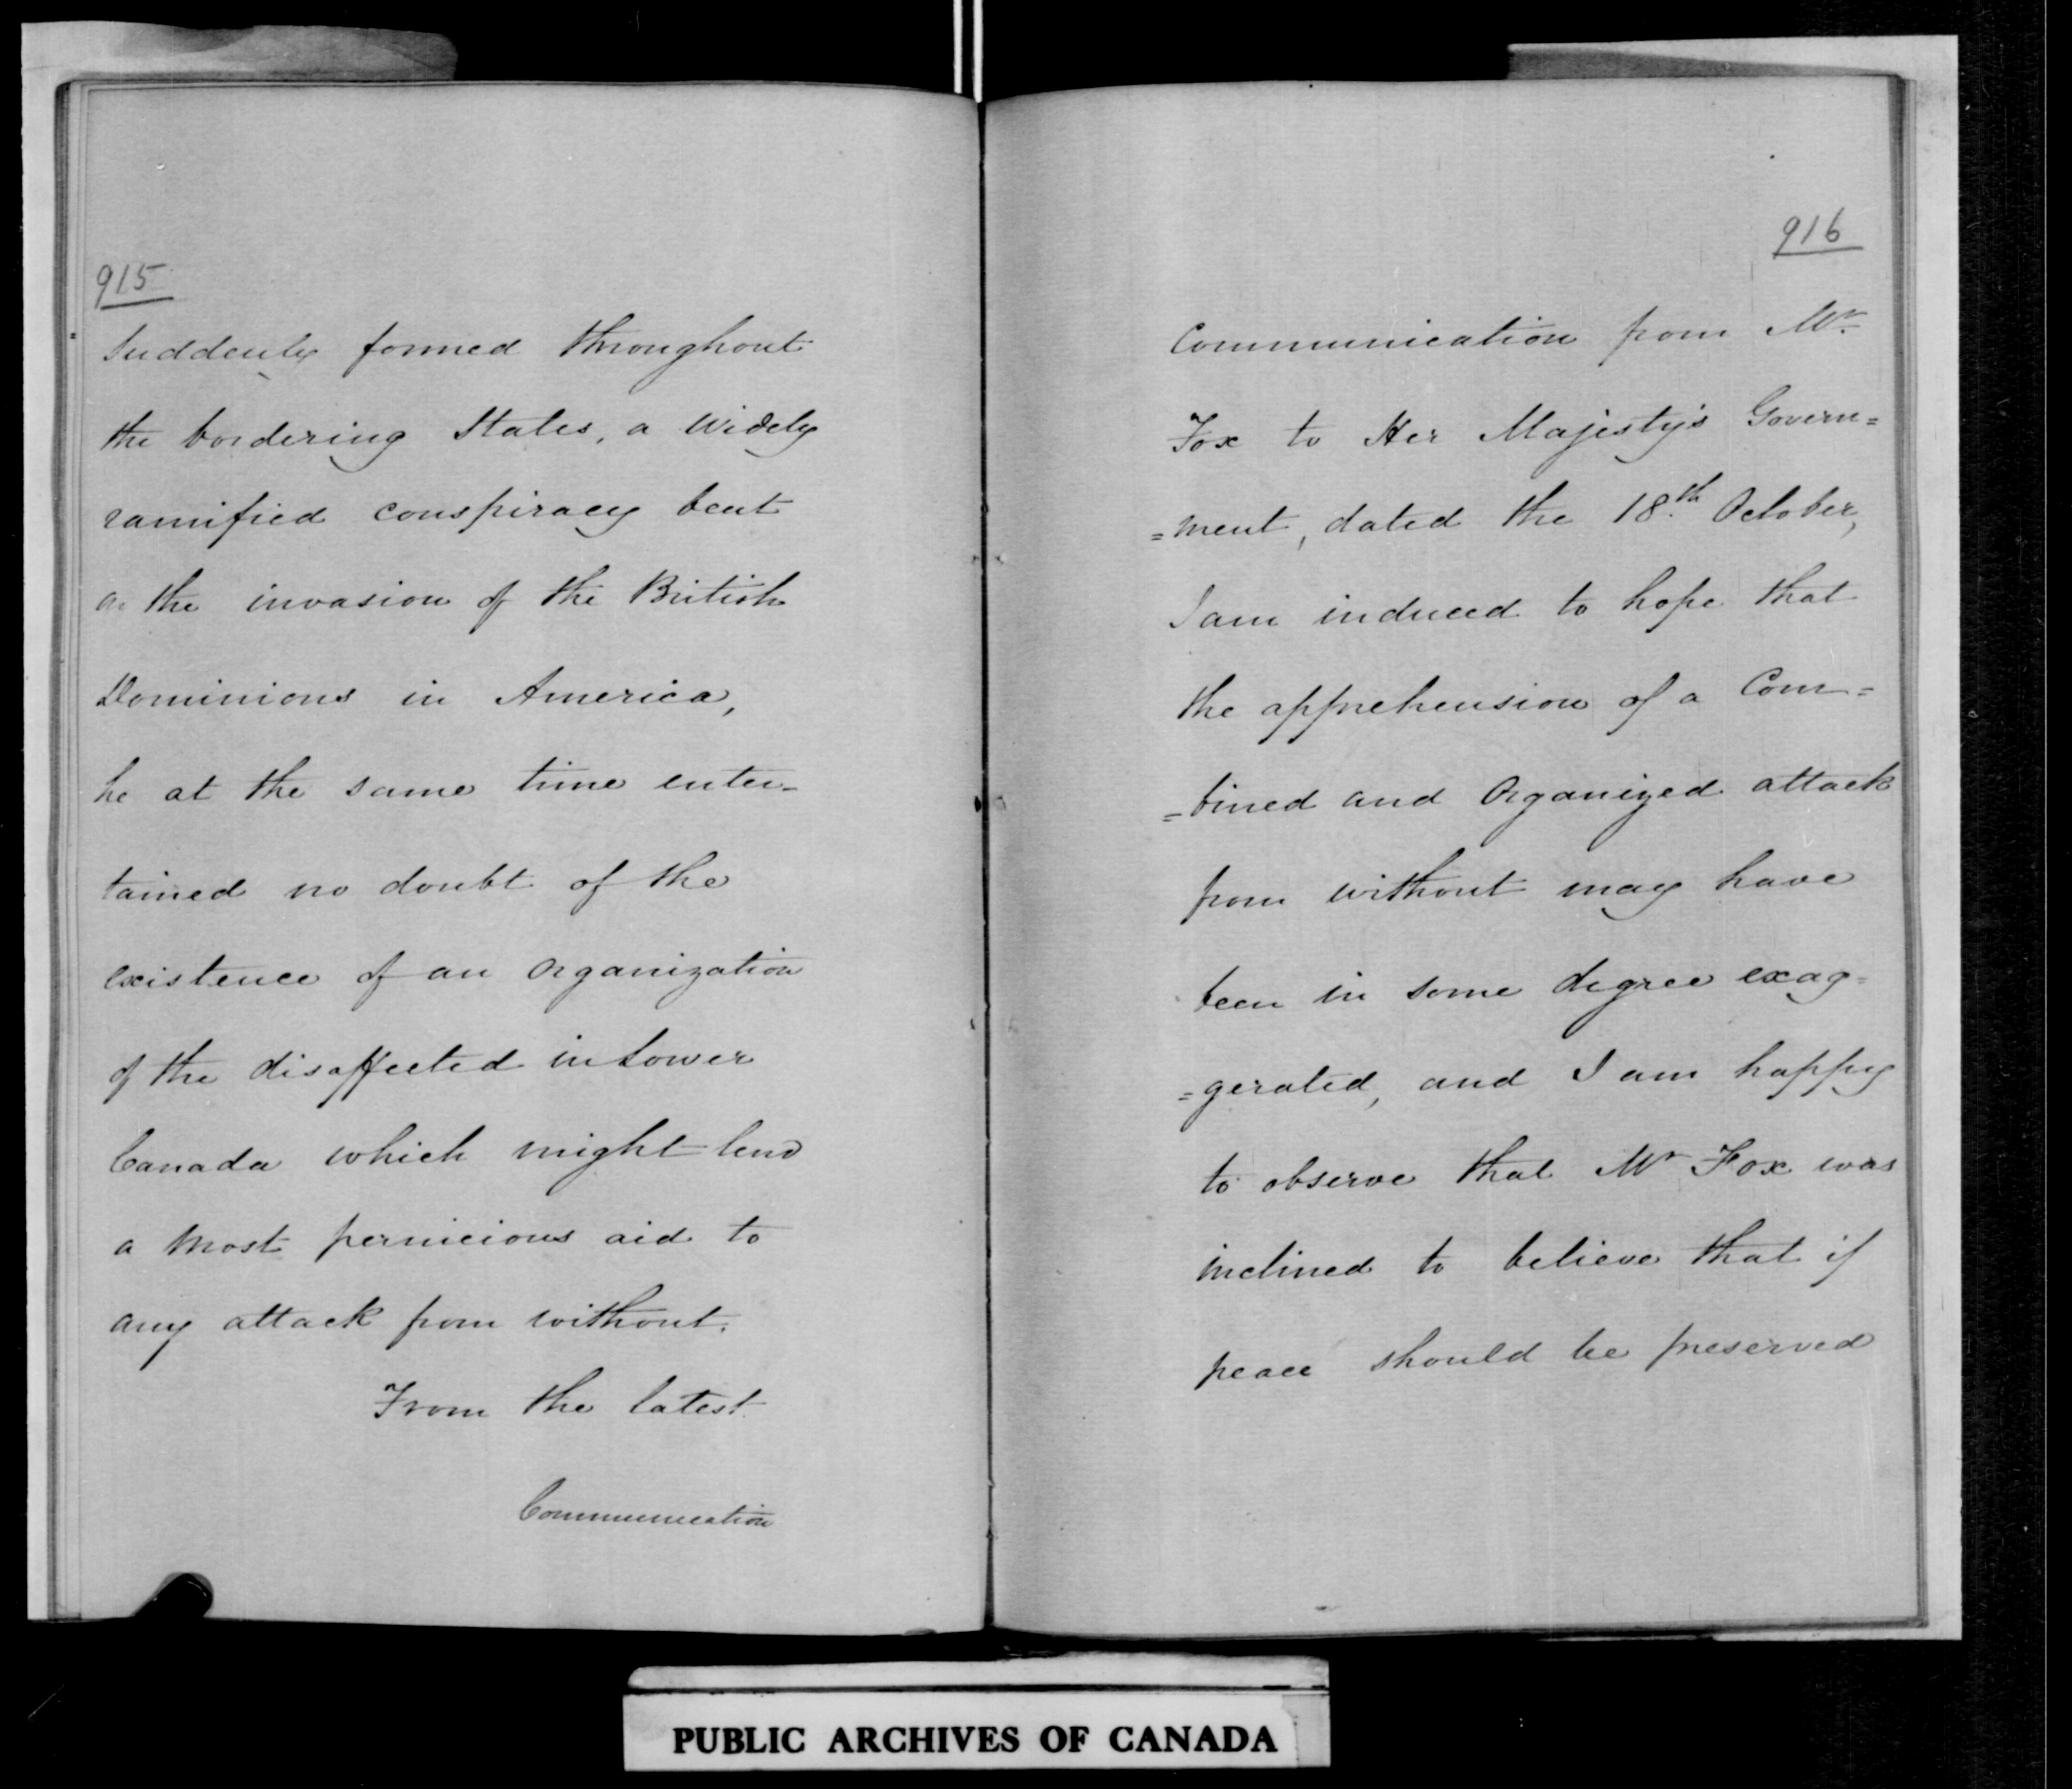 915
suddenly formed throughout
the bordering States, a widely
ramified conspiracy bent
on the invasion of the British
Dominions in America,
he at the same time enter-
tained no doubt of the
existence of an organization
of the disaffected in Lower
Canada which might lend
a most pernicious aid to
any attack from without.
From the latest
Communication
916
Communication from Mr.
Fox to Her Majesty's Govern=
=ment, dated the 18.th October,
I am induced to hope that
the apprehension of a Com=
=bined and Organized attack
from without may have
been in some degree exag=
=gerated, and I am happy
to observe that Mr Fox was
inclined to believe that if
peace should be preserved
PUBLIC ARCHIVES OF CANADA